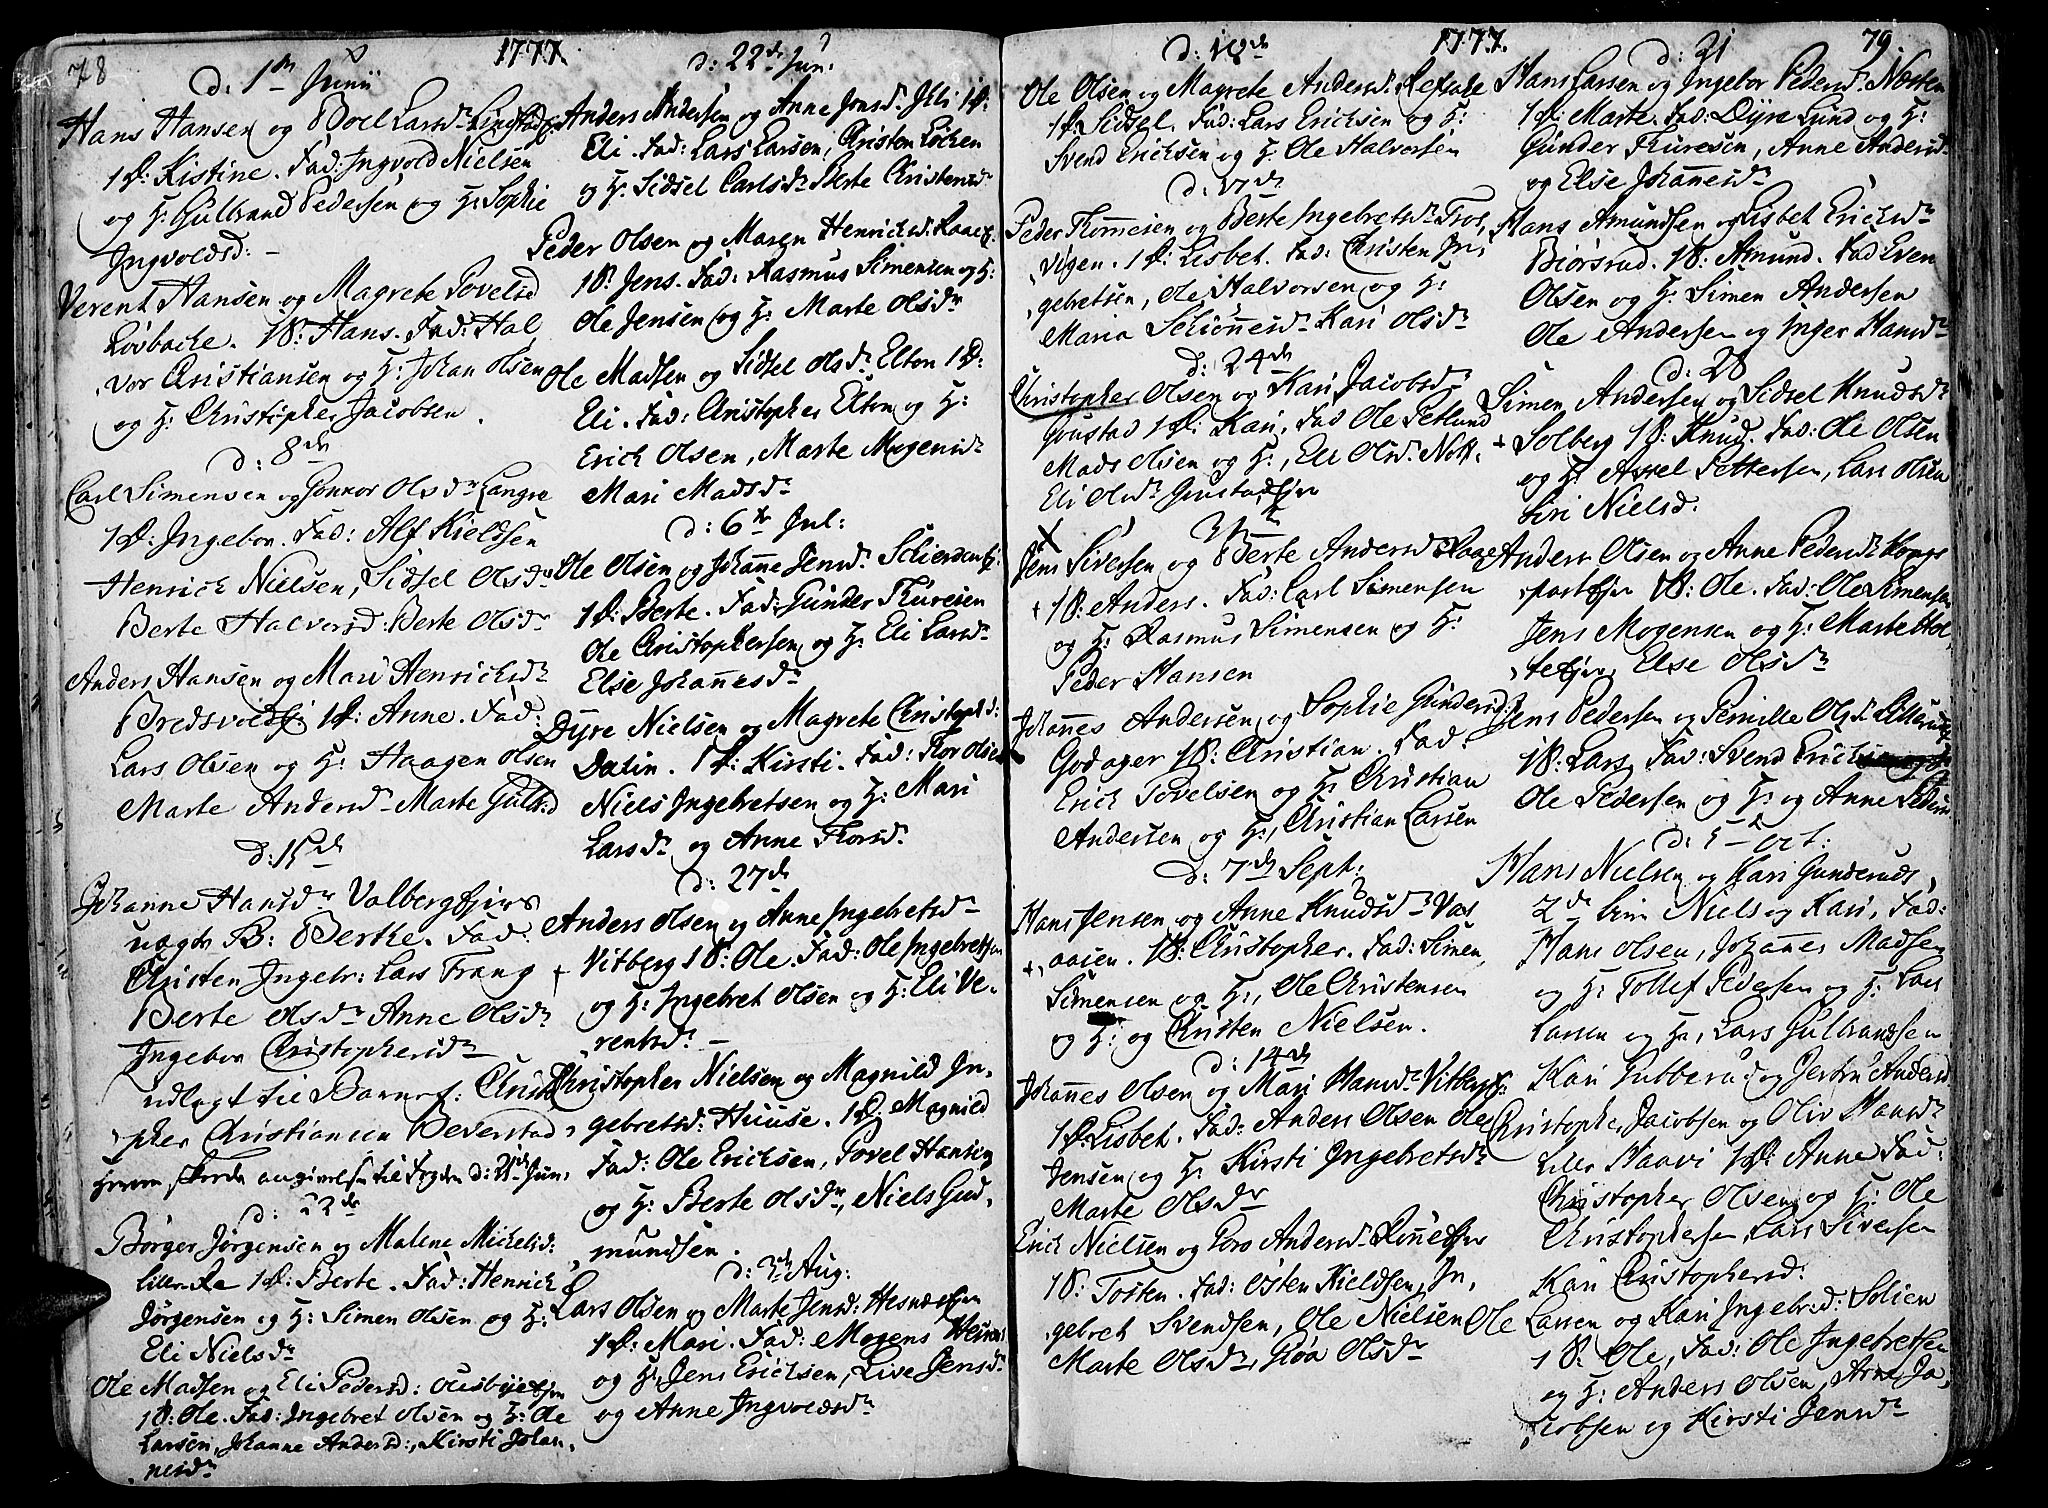 78
1777
d: 1ste Junii
Hans Hansen og Boel Larsdr
1 D: Kistine. Fad: Ingvold Nielsen
og H: Gulbrand Pedersen og H: Sophie
Ingvoldsd: -
Verent Hansen og Magrete Povelsd
Lövbacke. 1 S: Hans. Fad: Hal
vor Christiansen og H: Johan Olsen
og H: Christopher Jacobsen.
d: 8de
Carl Simensen og Gonnor Olsdr Langre
1 D: Ingebor. Fad: Alf Kieldsen
Henrich Nielsen, Sidsel Olsdr
Berte Halversd: Berte Olsdr
Anders Hansen og Mari Henrichsdr
1 D: Anne. Fad:
Lars Olsen og H: Haagen Olsen
Marte Andersdr Marte Gulsd
d: 15de
Johanne Hansdr Valbergejers
uægte B: Berthe. Fad:
Christen Ingebr: Lars Frang
Berte Olsdr Anne Olsdr
Ingebor Christophersdr
udlagt til Barnef: Christo
pher Christiansen Bederstad
Herom skeede angivelse til Fogden d: 21de Jun.
d: 22de
Börger Jörgensen og Malene Michelsd:
Lille Re 1 D: Berte. Fad: Henrich
Jörgensen og H: Simen Olsen og H:
Eli Nielsdr
Ole Madsen og Eli Pedersd:
1 S: Ole. Fad: Ingebret Olsen og H: Ole
Larsen, Johanne Andersd:, Kirsti Johan,
nesdr
d: 22de Jun:
Anders Andersen og Anne Jonsd. 1 D:
Eli. Fad: Lars Larsen, Christen Löcken
og H: Sidsel Carlsdr Berte Christensdr
Peder Olsen og Maren Henrichsd:
1 S: Jens. Fad: Rasmus Simensen og H:
Ole Jensen og H: Marte Olsdr
Ole Madsen og Sidsel Olsdr Elton 1 D:
Eli. Fad: Christopher Elton og H:
Erich Olsen, Marte Mogensdr
Mari Madsdr
d: 6te Jul:
Ole Olsen og Johanne Jensdr
1 D: Berte. Fad: Gunder Thuresen
Ole Christophersen og H: Eli Larsdr
Else Johannesdr
Dyre Nielsen og Magrete Christophd:
Dalin. 1 D: Kirsti. Fad: Thor Olsen
Niels Ingebretsen og H: Mari
Larsdr og Anne Thorsdr
d: 27de
Anders Olsen og Anne Ingebretsdr
+ Vitberg 1 S: Ole. Fad: Ole Ingebretsen
og H: Ingebret Olsen og H: Eli Ve-
rentsdr -
Christopher Nielsen og Magnild In-
gebretsd: Huuse. 1 D: Magnild
Fad: Ole Erichsen, Povel Hansen
og H: Berte Olsdr, Niels Gud,
mundsen.
d: 3de Aug:
Lars Olsen og Marte Jensd:
1 D: Mari. Fad: Mogens
og H: Jens Erichsen, Live Jensdr
og Anne Ingvoldsdr
1777.
79.
d: 10de
Ole Olsen og Magrete Andersd:
1 D: Sidsel. Fad: Lars Erichsen og H:
Svend Erichsen og H: Ole Halvorsen
d: 17de
Peder Thommesen og Berte Ingebretsdr Tros,
vigen. 1 D: Lisbet. Fad: Christen In,
gebretsen, Ole Halvorsen og H:
Maria Schionnesdr Kari Olsdr
d: 24de
Christopher Olsen og Kari Jacobsdr
Grustad 1 D: Kari. Fad Ole Petlund
Mads Olsen og H:, Eli Olsdr
Eli Olsdr
31te
Jens Siversen og Berte Andersdr
+ 1 S: Anders. Fad: Carl Simensen
og H: Rasmus Simensen og H:
Peder Hansen
Johannes Andersen og Sophie Gundersd:
Godager 1 S: Christian. Fad:
Erich Povelsen og H: Christian
Andersen og H:, Christian Larsen
d: 7de Sept:
Hans Jensen og Anne Knudsdr Vas
+ aasen. 1 S: Christopher. Fad: Simen
Simensen og H:, Ole Christensen
og H: og Christen Nielsen.
d: 14de
Johannes Olsen og Mari Hansdr
1 D: Lisbet. Fad: Anders Olsen Ole
Jensen og H: Kirsti Ingebretsdr
Marte Olsdr
Erich Nielsen og Goro Andersdr
1 S: Tosten. Fad: Osten Kieldsen, In,
gebret Svendsen, Ole Nielsen
Marte Olsdr, Goa Olsdr
d: 21
Hans Larsen og Ingebor Pedersdr
1 D: Marte. Fad: Dyre Lund og H:
Gunder Thuresen, Anne Andersdr
og Else Johannesdr
Hans Amundsen og Lisbet Erichsdr
Biörsrud. 1 S: Amund. Fad Even
Olsen og H: Simen Andersen
Ole Andersen og Inger Hansdr
d: 28
Simen Andersen og Sidsel Knudsdr
+ Solberg 1 S: Knud. Fad: Ole Olsen
og H: Axel Pettersen, Lars Olsen
Siri Nielsd.
Anders Olsen og Anne Pedersdr Kongs
partejer 1 S: Ole. Fad: Ole Simensen
Jens Mogensen og H: Marte
Else Olsdr
Jens Pedersen og Pernille Olsdr
1 S: Lars. Fad: Svend
Ole Pedersen og H: og Anne
d: 5te Oct:
Hans Nielsen og Kari Gunderuds
2de Niels og Kari, Fad:
Hans Olsen, Johannes Madsen
og H: Tollef Pedersen og H: Lars
Larsen og H:, Lars Gulbrandsen
Kari Tubberud og Andersd
Christopher Jacobsen og Oliv Hansdr
Lille Haavi 1 D: Anne Fad:
Christopher Olsen og H: Ole
Christophersen, Lars Siversen
Kari Christophersd:
Ole Larsen og Kari Ingebrsd: Solien
1 S: Ole, Fad: Ole Ingebretsen
og H: Anders Olsen, Arne Ja,
cobsen og Kirsti Jensdr